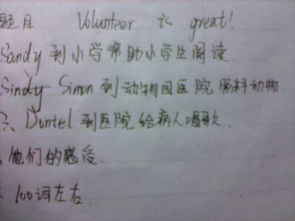 题目 Volunteer is great!
Sandy 到小学帮助小学生阅读.
Sindy Simon 到动物园医院照料动物.
Daniel 到医院给病人唱歌.
他们的感受.
100词左右.